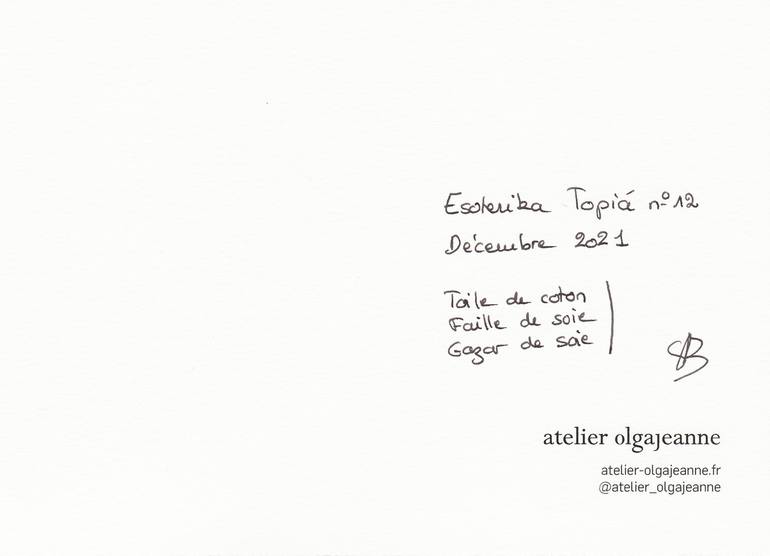 Esoterika Topiá nº12
Décembre 2021
Toile de coton
Faille de soie
Gazar de soie
SB
atelier olgajeanne
atelier-olgajeanne.fr
@atelier_olgajeanne